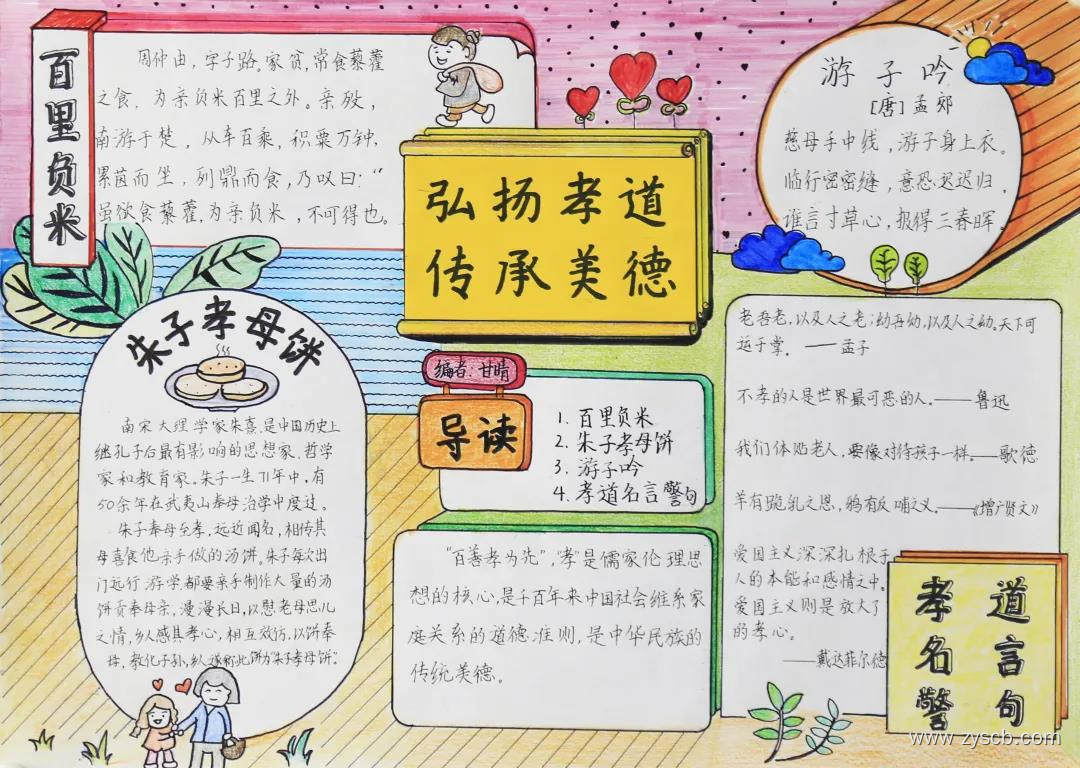 百里负米
周仲由，字子路。家贫，常食藜藿
之食，为亲负米百里之外。亲殁，
南游于楚，从车百乘，积粟万钟，
累茵而坐，列鼎而食，乃叹曰：“
虽欲食藜藿，为亲负米，不可得也。
弘扬孝道
传承美德
游子吟
[唐]孟郊
慈母手中线，游子身上衣。
临行密密缝，意恐迟迟归，
谁言寸草心，报得三春晖。
朱子孝母饼
南宋大理学家朱熹，是中国历史上
继孔子后最有影响的思想家、哲学
家和教育家。朱子一生71年中，有
50余年在武夷山奉母治学中度过。
朱子奉母至孝，远近闻名，相传其
母喜食他亲手做的汤饼。朱子每次出
门远行游学，都要亲手制作大量的汤
饼贡奉母亲，漫漫长日，以慰老母思儿
之情，乡人感其孝心，相互效仿，以饼奉
母，教化子孙，乡人遂称此饼为“朱子孝母饼”。
编者：甘晴
导读
1. 百里负米
2. 朱子孝母饼
3. 游子吟
4. 孝道名言警句
“百善孝为先”，“孝”是儒家伦理思
想的核心，是千百年来中国社会维系家
庭关系的道德准则，是中华民族的
传统美德。
老吾老，以及人之老；幼吾幼，以及人之幼。天下可
运于掌。——孟子
不孝的人是世界最可恶的人。——鲁迅
我们体贴老人，要像对待孩子一样。——歌德
羊有跪乳之恩，鸦有反哺之义。——《增广贤文》
爱国主义深深扎根于
人的本能和感情之中。
爱国主义则是放大了
的孝心。
——戴达菲尔德
孝道
名言
警句
www.zyscb.com